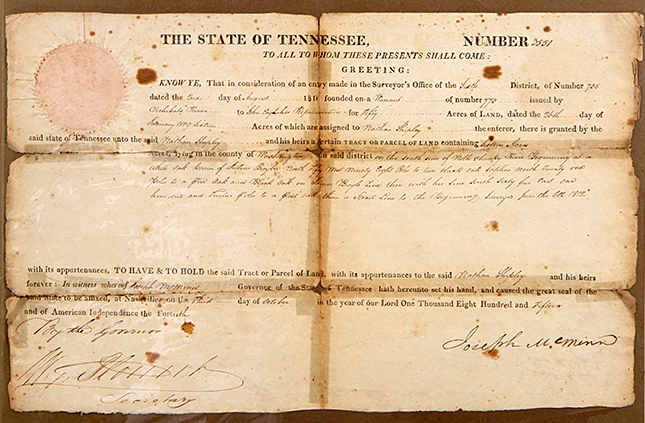 THE STATE OF TENNESSEE, NUMBER 2551
TO ALL TO WHOM THESE PRESENTS SHALL COME:
GREETING:
KNOW YE, That in consideration of an entry made in the Surveyor's Office of the District, of Number 785
dated the day of August 1810 founded on a Warrant of number 773 issued by
Archibald to John for Fifty Acres of LAND, dated the 26th day of
January Acres of which are assigned to Nathan Shipley the enterer, there is granted by the
said state of Tennessee unto the said Nathan Shipley and his heirs a certain TRACT OR PARCEL OF LAND containing Sixteen Acres
Acres, lying in the county of Washington in said district on the South side of Beginning at a
White oak Corner of North fifty West Ninety Eight Poles to two black oak North twenty one
Poles to a Post oak and Black oak on line then with his line South Sixty five East one
hundred and Twelve Poles to a Post oak then a Strait Line to the Beginning Surveyed
with its appurtenances, TO HAVE & TO HOLD the said Tract or Parcel of Land, with its appurtenances to the said Nathan Shipley and his heirs
forever: In witness whereof Joseph McMinn Governor of the State of Tennessee hath hereunto set his hand, and caused the great seal of the
said State to be affixed, at Nashville on the Third day of October in the year of our Lord One Thousand Eight Hundred and Fifteen
and of American Independence the Fortieth
By the Governor
Joseph McMinn
Secretary